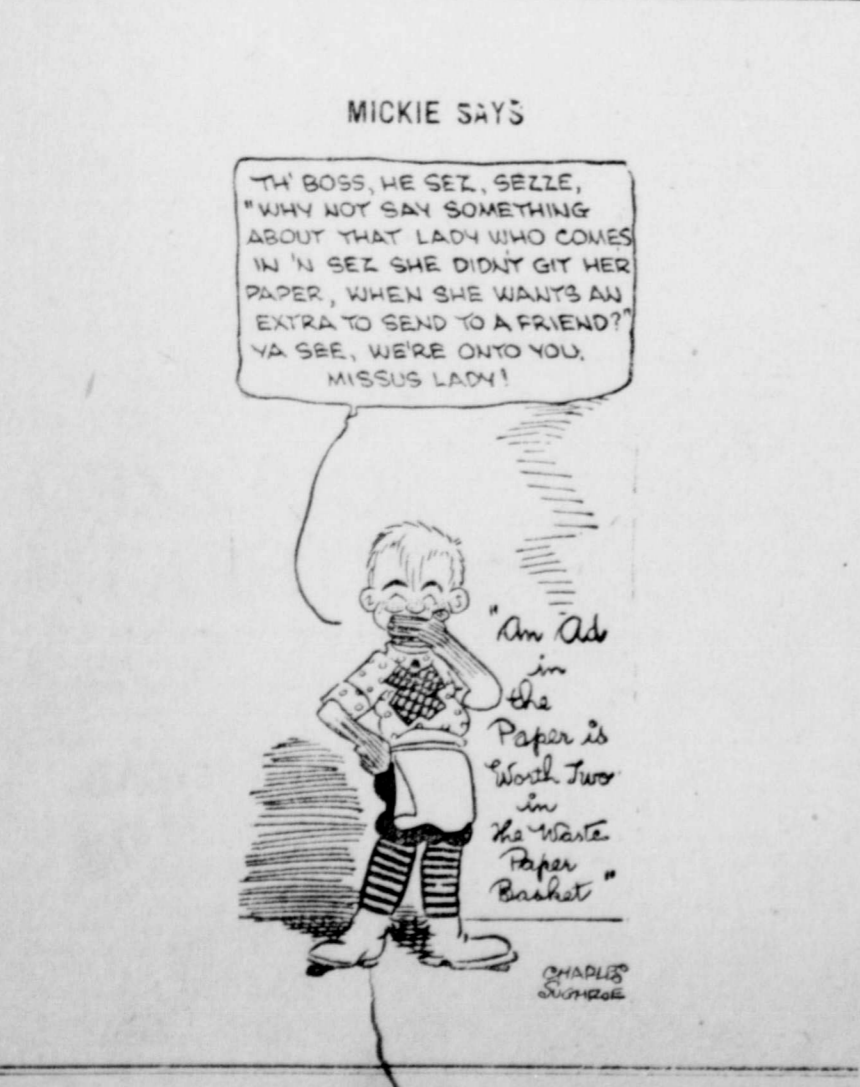 MICKIE SAYS
TH' BOSS, HE SEZ, SEZZE,
"WHY NOT SAY SOMETHING
ABOUT THAT LADY WHO COMES
IN 'N SEZ SHE DIDN'T GIT HER
PAPER, WHEN SHE WANTS AN
EXTRA TO SEND TO A FRIEND?"
YA SEE, WE'RE ONTO YOU,
MISSUS LADY!
"An Ad
in
the
Paper is
Worth Two
in
the Waste
Paper
Basket"
CHARLES
SUGHROE